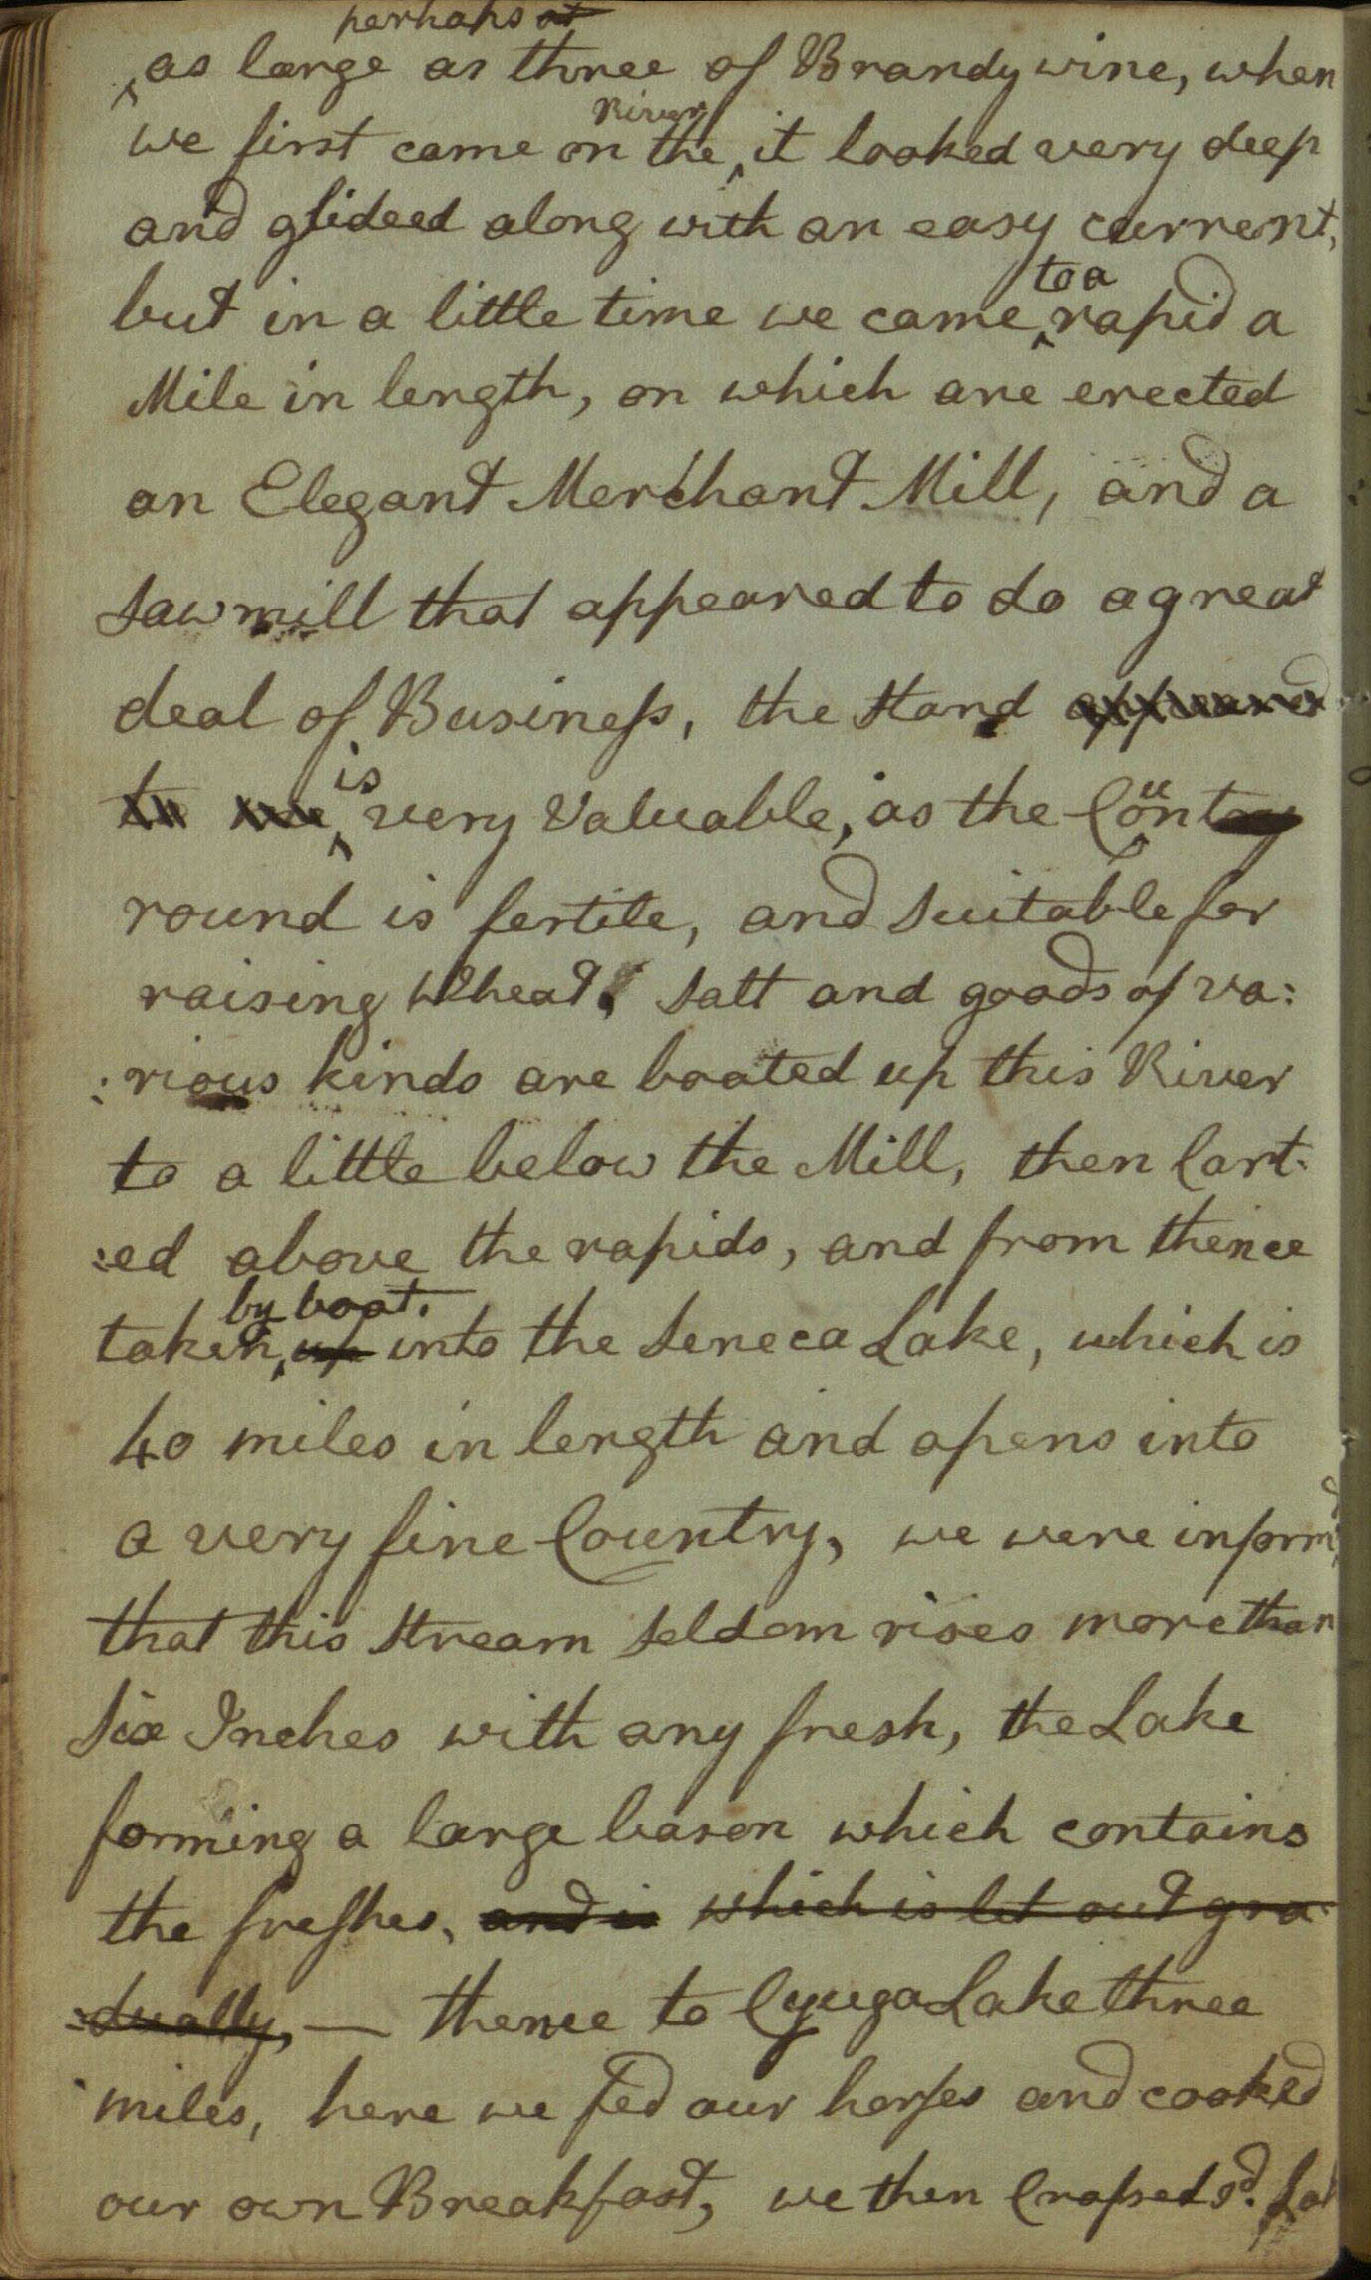 perhaps at
as large as three of Brandywine, when
River
we first came on the it looked very deep
and glideed along with an easy current,
to a
but in a little time we came rapid a
Mile in length, on which are erected
an Elegant Merchant Mill, and a
Sawmill that appeared to do a great
deal of Business, the Stand appeared
is
to me very Valuable, as the Contry
u
round is fertile, and Suitable for
raising Wheat. Salt and goods of va:
:rious kinds are boated up this River
to a little below the Mill, then Cart:
:ed above the rapids, and from thence
by boat.
taken up into the Seneca Lake, which is
40 miles in length and opens into
a very fine Country, we were informd
that this Stream Seldom rises more than
Six Inches with any fresh, the Lake
forming a large bason which contains
the freshes, and is which is let out gra:
:dually, — thence to Cyuga Lake three
miles, here we fed our horses and cooked
our own Breakfast, we then Crossed sd. Lak